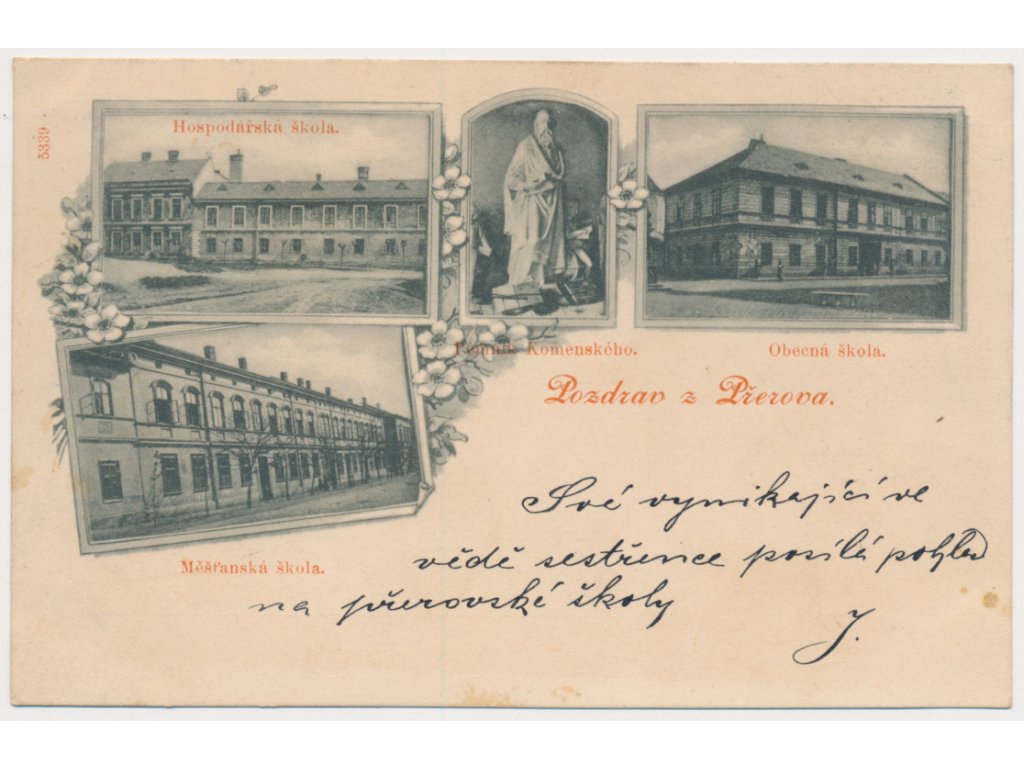 5339
Hospodářská škola.
Pomník Komenského.
Obecná škola.
Pozdrav z Přerova.
Měšťanská škola.
Své vynikající ve
vědě sestřence posílá pohled
na přerovské školy
J.